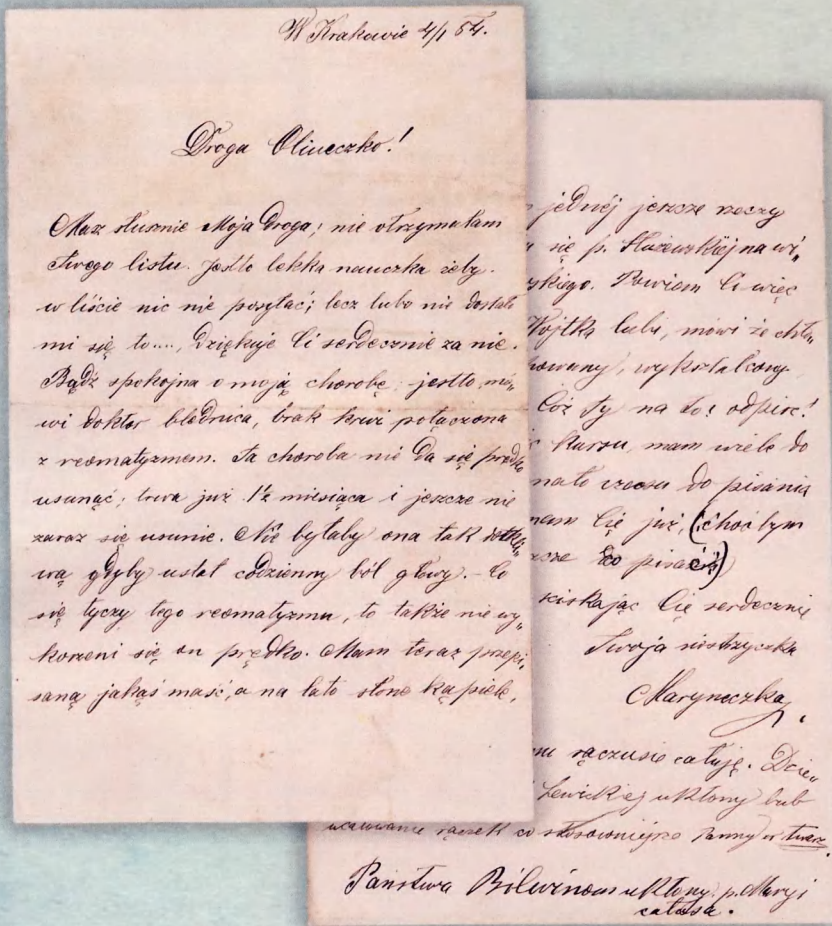 W Krakowie 4/1 84.
Droga Olineczko!
Masz słusznie Moja Droga; nie otrzymałam
Twego listu. Jestto lekka nauczka żeby
w liście nic nie posyłać; lecz lubo nie dostało
mi się to...., dziękuję Ci serdecznie za nie.
Bądź spokojna o moją chorobę; jestto, mó„
wi doktor blednica, brak krwi połączona
z reomatyzmem. Ta choroba nie da się prędko
usunąć; trwa już 1½ miesiąca i jeszcze nie
zaraz się usunie. Nie byłaby ona tak dotkli„
wą gdyby ustał codzienny ból głowy. – Co
się tyczy tego reomatyzmu, to także nie wy„
korzeni się on prędko. Mam teraz przepi„
saną jakąś maść, a na lato słone kąpiele,
jednéj jeszcze rzeczy
się p. na wi„
skiego. Powiem Ci więc
Wojtka lubi, mówi że chło„
howany, wykształcony
Cóż Ty na to? odpisz!
kursu, mam wiele do
mało czasu do pisania
Cię już, (choć bym
pisać)
ściskając Cię serdecznie
Twoja siostrzyczka
Maryneczka
rączusie całuję.
Lewickiej ukłony lub
rączek co stosowniejsze Panny
Państwu ukłony, p. Maryi
całusa.